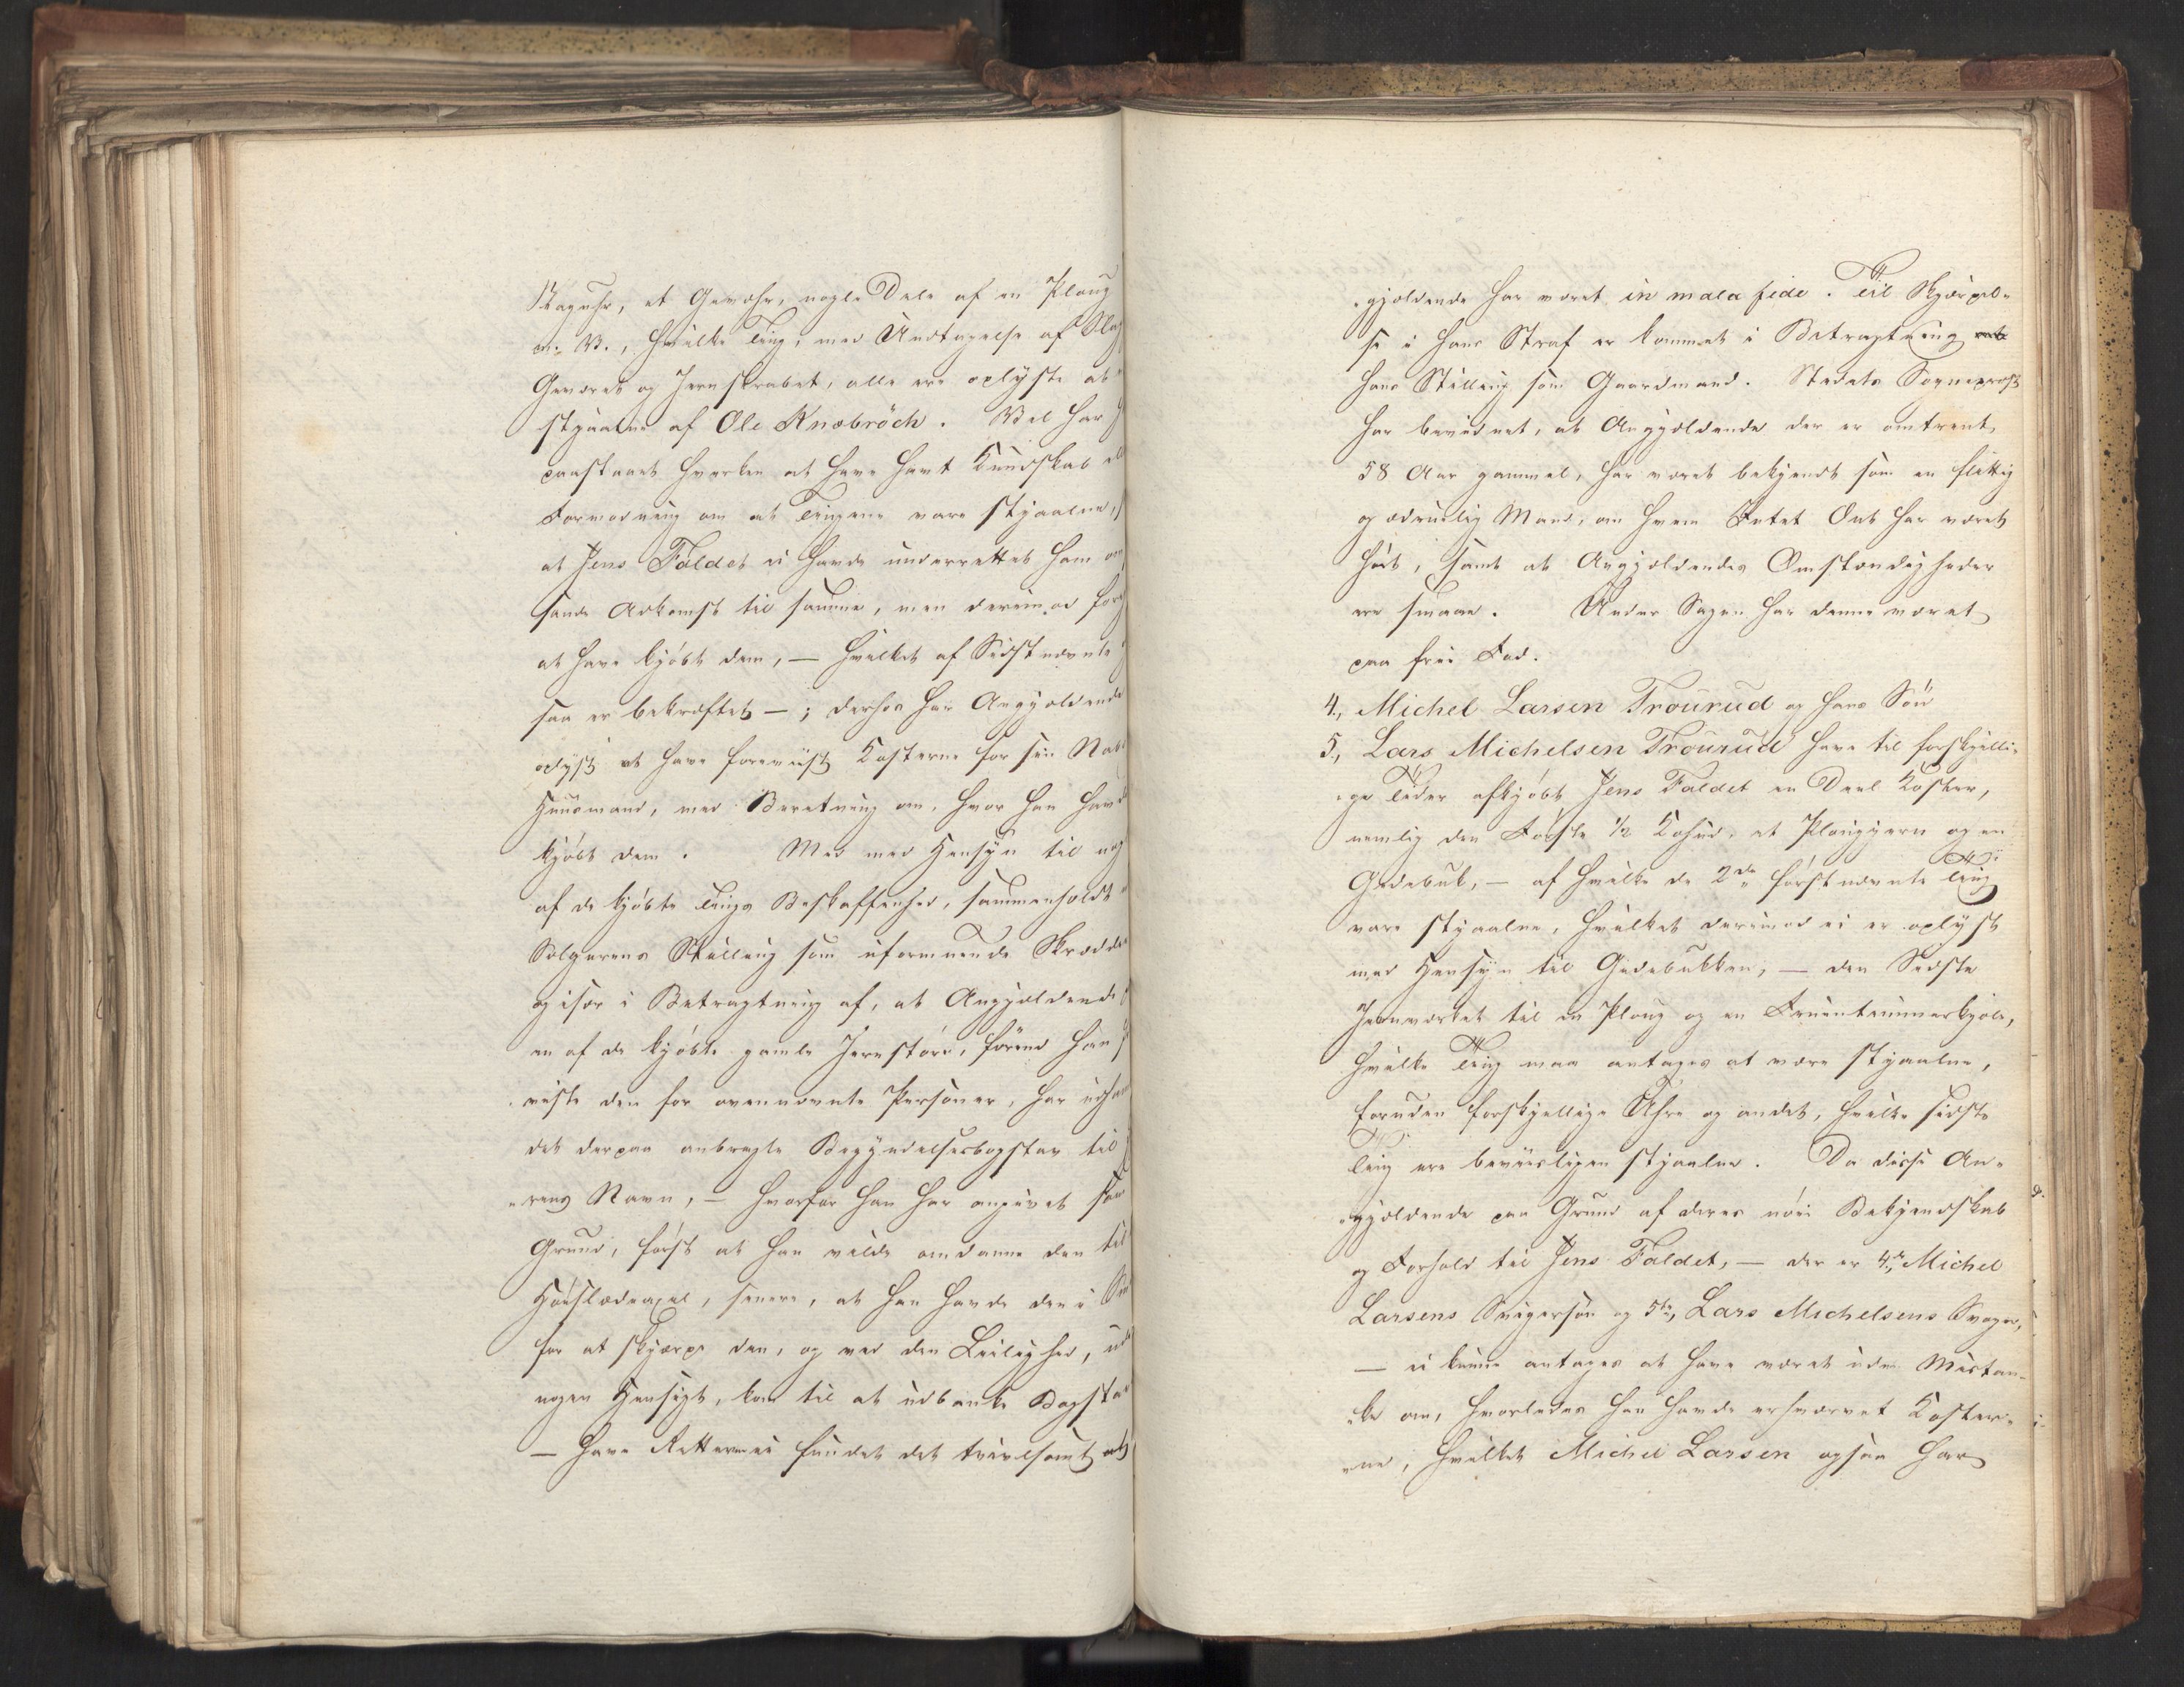 Staguhr, et Gevæhr, nogle Dele af en Ploug
m. V., hvilke Ting, med Undtagelse af Slag
Geværet og Jernskrabet, alle ere oplyste at
stjaalne af Ole Knobröch. Vel har
paastaaet hverken at have havt Kundskab ell
Formodning om at Tingene vare stjaalne,
at Jens Faldet ei havde underrettet ham om
sande Adkomst til samme, men derimod foreg
at have kjöbt dem, — hvilket af Sidstnævnte
saa er bekræftet —; derhos har Angjældende
oplyst at have foreviist Kosterne for sin Nabo
Huusmand, med Beretning om, hvor han havde
kjöbt dem. Men med Hensyn til nog
af de kjöbte Tings Beskaffenhed, sammenholdt
Sælgerens Stilling som uformuende Skrædder
og især i Betragtning af, at Angjældende
en af de kjöbte gamle Jernstörer, förend han
viste den for ovennævnte Personer, har udham
det derpaa anbragte Begyndelsesbogstav til
rens Navn, — hvorfor han har angivet som
Grund, först at han vilde omdanne den til
Höislædeaxel, senere, at han havde den i
for at skjærpe den, og ved den Leilighed, ude
nogen Hensigt, kom til at udbanke Bogstav
— have Retterne ei fundet det tvivlsomt at
gjældende har været in mala fide. Til Skjærpel-
se i hans Straf er kommet i Betragtning
hans Stilling som Gaardmand. Stedets Sognepræst
har bevidnet, at Angjældende der er omtrent
58 Aar gammel, har været bekjendt som en flittig
og ædruelig Mand, om hvem Intet Ont har været
hört, samt at Angjældendes Omstændigheder
ere smaae. Under Sagen har denne været
paa frie Fod.
4., Michel Larsen Trourud og hans Sön
5., Lars Michelsen Trourud have til forskjelli-
ge Tider afkjöbt Jens Faldet en Deel Koster,
nemlig den Förste 1/2 Kohud, et Plougjern og en
Gedebuk, — af hvilke de 2de förstnævnte Ting
vare stjaalne, hvilket derimod ei er oplyst
med Hensyn til Gedebukken, — den Sidste
Jernværket til en Ploug og en Fruentimmerkjole,
hvilke Ting maa antages at være stjaalne,
foruden forskjellige Uhre og andet, hvilke sidste
Ting ere beviisligen stjaalne. Da disse An-
gjældende paa Grund af deres nöie Bekjendskab
og Forhold til Jens Faldet, — der er 4de, Michel
Larsens Svigersön og 5te, Lars Michelsens Svoger,
— ei kunne antages at have været uden Mistan-
ke om, hvorledes han havde erhvervet Koster-
ne, hvilket Michel Larsen ogsaa har